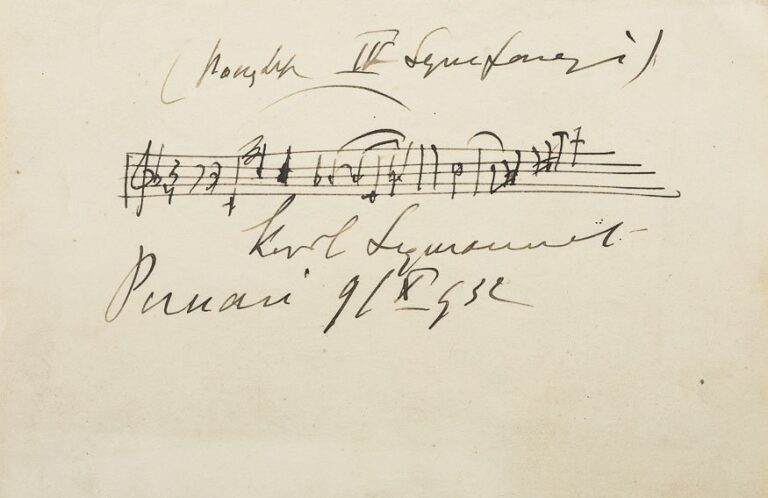 (Początek IV Symfonji)
Karol Szymanowski
Poznań 9/X 932